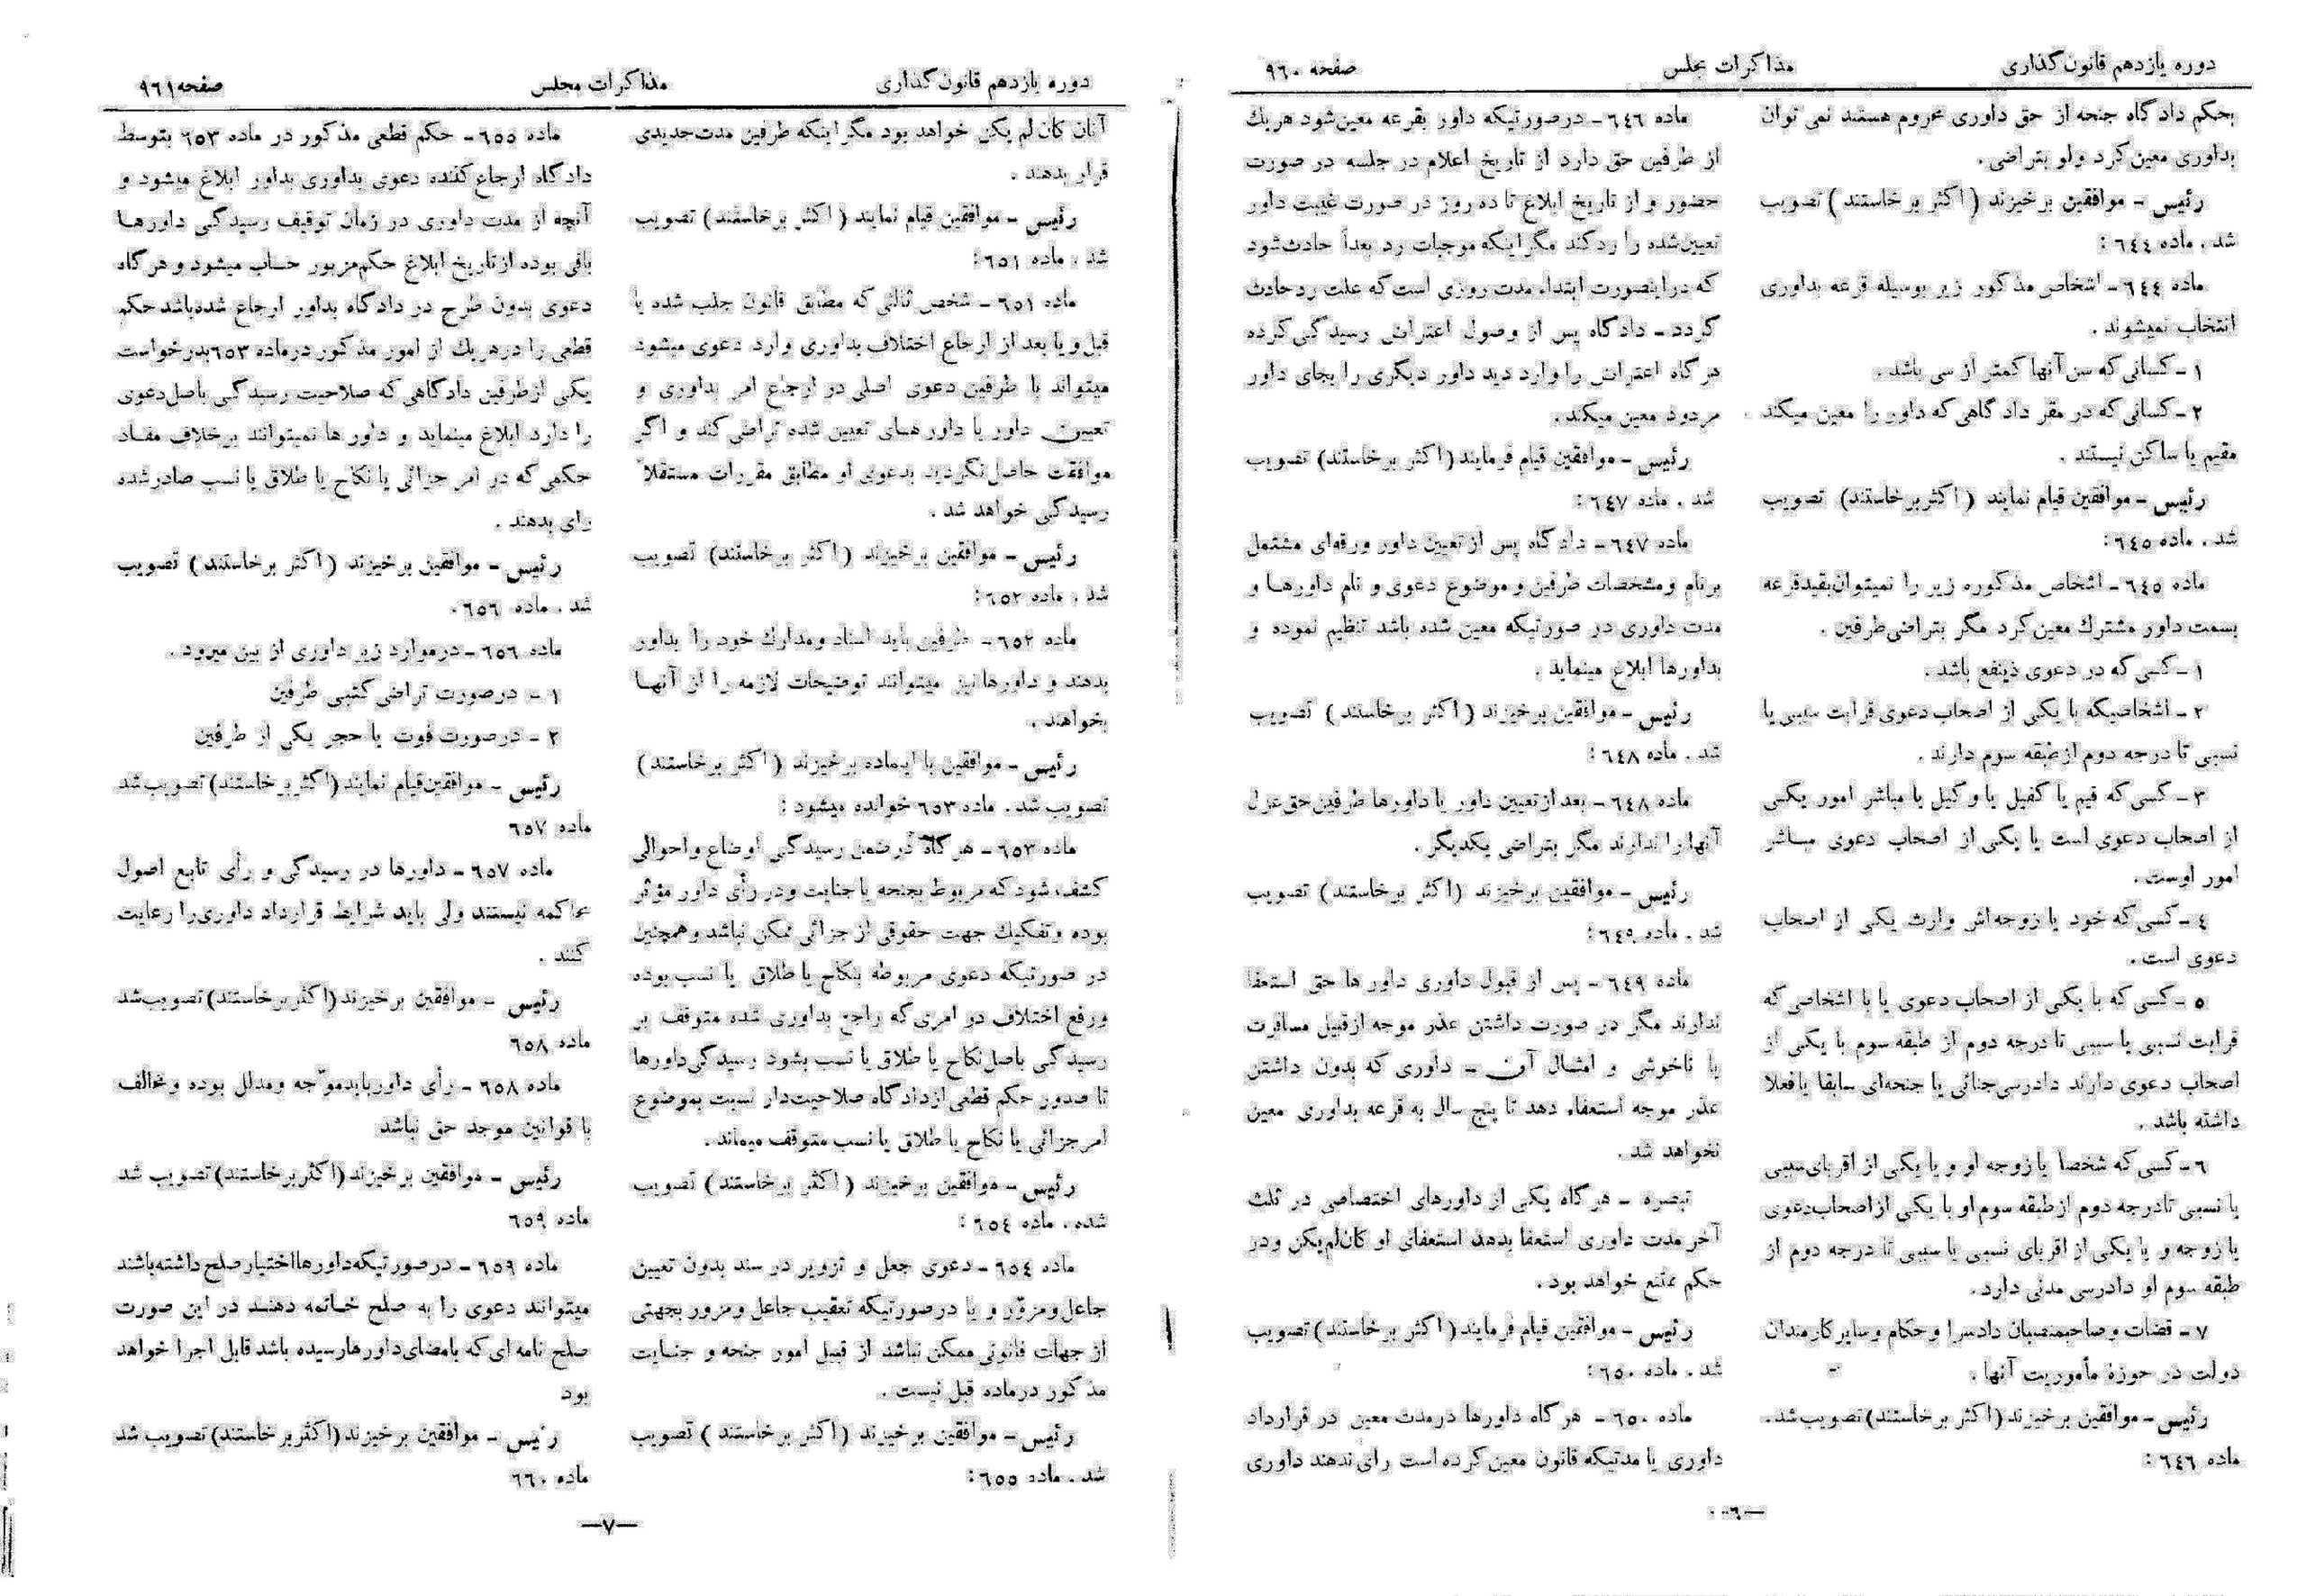 دوره یازدهم قانون‌گذاری
مذاکرات مجلس
صفحه ۹٦۰
بحکم دادگاه جنحه از حق داوری محروم هستند نمی توان
بداوری معین کرد ولو بتراضی.
رئیس - موافقین برخیزند (اکثر برخاستند) تصویب
شد. ماده ٦٤٤ :
ماده ٦٤٤ - اشخاص مذکور زیر بوسیله قرعه بداوری
انتخاب نمیشوند.
۱ - کسانی که سن آنها کمتر از سی باشد.
۲ - کسانی که در مقر دادگاهی که داور را معین میکند
مقیم یا ساکن نیستند.
رئیس - موافقین قیام نمایند (اکثر برخاستند) تصویب
شد. ماده ٦٤٥:
ماده ٦٤٥ - اشخاص مذکوره زیر را نمیتوان بقید قرعه
بسمت داور مشترك معین کرد مگر بتراضی طرفین.
۱ - کسی که در دعوی ذینفع باشد.
۲ - اشخاصیکه با یکی از اصحاب دعوی قرابت سببی یا
نسبی تا درجه دوم از طبقه سوم دارند.
۳ - کسی که قیم یا کفیل یا وکیل یا مباشر امور یکی
از اصحاب دعوی است یا یکی از اصحاب دعوی مباشر
امور اوست.
٤ - کسی که خود یا زوجه‌اش وارث یکی از اصحاب
دعوی است.
٥ - کسی که با یکی از اصحاب دعوی یا با اشخاصی که
قرابت نسبی یا سببی تا درجه دوم از طبقه سوم با یکی از
اصحاب دعوی دارند دادرسی جنائی یا جنحه‌ای سابقا یا فعلا
داشته باشد.
٦ - کسی که شخصاً یا زوجه او و یا یکی از اقربای سببی
یا نسبی تا درجه دوم از طبقه سوم او با یکی از اصحاب دعوی
یا زوجه و یا یکی از اقربای نسبی یا سببی تا درجه دوم از
طبقه سوم او دادرسی مدنی دارد.
۷ - قضات و صاحبمنصبان دادسرا و حکام و سایر کارمندان
دولت در حوزه مأموریت آنها.
رئیس - موافقین برخیزند (اکثر برخاستند) تصویب شد.
ماده ٦٤٦ :
ماده ٦٤٦ - در صورتیکه داور بقرعه معین شود هر یك
از طرفین حق دارد از تاریخ اعلام در جلسه در صورت
حضور و از تاریخ ابلاغ تا ده روز در صورت غیبت داور
تعیین شده را رد کند مگر اینکه موجبات رد بعداً حادث شود
که در اینصورت ابتداء مدت روزی است که علت رد حادث
گردد - دادگاه پس از وصول اعتراض رسیدگی کرده
هر گاه اعتراض را وارد دید داور دیگری را بجای داور
مردود معین میکند.
رئیس - موافقین قیام فرمایند (اکثر برخاستند) تصویب
شد. ماده ٦٤۷ :
ماده ٦٤۷ - دادگاه پس از تعیین داور ورقه‌ای مشتمل
بر نام و مشخصات طرفین و موضوع دعوی و نام داورها و
مدت داوری در صورتیکه معین شده باشد تنظیم نموده و
بداورها ابلاغ مینماید.
رئیس - موافقین برخیزند (اکثر برخاستند) تصویب
شد. ماده ٦٤۸ :
ماده ٦٤۸ - بعد از تعیین داور یا داورها طرفین حق عزل
آنها را ندارند مگر بتراضی یکدیگر.
رئیس - موافقین برخیزند (اکثر برخاستند) تصویب
شد. ماده ٦٤۹ :
ماده ٦٤۹ - پس از قبول داوری داور ها حق استعفا
ندارند مگر در صورت داشتن عذر موجه از قبیل مسافرت
یا ناخوشی و امثال آن - داوری که بدون داشتن
عذر موجه استعفاء دهد تا پنج سال به قرعه بداوری معین
نخواهد شد.
تبصره - هر گاه یکی از داورهای اختصاصی در ثلث
آخر مدت داوری استعفا بدهد استعفای او کان لم یکن و در
حکم ممتنع خواهد بود.
رئیس - موافقین قیام فرمایند (اکثر برخاستند) تصویب
شد. ماده ٦٥۰ :
ماده ٦٥۰ - هر گاه داورها در مدت معین در قرارداد
داوری یا مدتیکه قانون معین کرده است رای ندهند داوری
—٦—
دوره یازدهم قانون‌گذاری
مذاکرات مجلس
صفحه ۹٦۱
آنان کان لم یکن خواهد بود مگر اینکه طرفین مدت جدیدی
قرار بدهند.
رئیس - موافقین قیام نمایند (اکثر برخاستند) تصویب
شد. ماده ٦٥۱ :
ماده ٦٥۱ - شخص ثالثی که مطابق قانون جلب شده یا
قبل و یا بعد از ارجاع اختلاف بداوری وارد دعوی میشود
میتواند با طرفین دعوی اصلی در ارجاع امر بداوری و
تعیین داور یا داور های تعیین شده تراضی کند و اگر
موافقت حاصل نگردید بدعوی او مطابق مقررات مستقلاً
رسیدگی خواهد شد.
رئیس - موافقین برخیزند (اکثر برخاستند) تصویب
شد. ماده ٦٥۲ :
ماده ٦٥۲ - طرفین باید اسناد و مدارك خود را بداور
بدهند و داورها نیز میتوانند توضیحات لازمه را از آنها
بخواهند.
رئیس - موافقین با این‌ماده برخیزند (اکثر برخاستند)
تصویب شد. ماده ٦٥۳ خوانده میشود :
ماده ٦٥۳ - هر گاه در ضمن رسیدگی اوضاع و احوالی
کشف شود که مربوط بجنحه یا جنایت و در رأی داور مؤثر
بوده و تفکیك جهت حقوقی از جزائی ممکن نباشد و همچنین
در صورتیکه دعوی مربوطه بنکاح یا طلاق یا نسب بوده
و رفع اختلاف در امری که راجع بداوری شده متوقف بر
رسیدگی باصل نکاح یا طلاق یا نسب بشود رسیدگی داورها
تا صدور حکم قطعی از دادگاه صلاحیت‌دار نسبت بموضوع
امر جزائی یا نکاح یا طلاق یا نسب متوقف میماند.
رئیس - موافقین برخیزند (اکثر برخاستند) تصویب
شده. ماده ٦٥٤ :
ماده ٦٥٤ - دعوی جعل و تزویر در سند بدون تعیین
جاعل و مزوّر و یا در صورتیکه تعقیب جاعل و مزور بجهتی
از جهات قانونی ممکن نباشد از قبیل امور جنحه و جنایت
مذکور در ماده قبل نیست.
رئیس - موافقین برخیزند (اکثر برخاستند) تصویب
شد. ماده ٦٥٥ :
ماده ٦٥٥ - حکم قطعی مذکور در ماده ٦٥۳ بتوسط
دادگاه ارجاع کننده دعوی بداوری بداور ابلاغ میشود و
آنچه از مدت داوری در زمان توقیف رسیدگی داورها
باقی بوده از تاریخ ابلاغ حکم مزبور حساب میشود و هر گاه
دعوی بدون طرح در دادگاه بداور ارجاع شده باشد حکم
قطعی را در هر یك از امور مذکور در ماده ٦٥۳ بدرخواست
یکی از طرفین دادگاهی که صلاحیت رسیدگی باصل دعوی
را دارد ابلاغ مینماید و داور ها نمیتوانند بر خلاف مفاد
حکمی که در امر جزائی یا نکاح یا طلاق یا نسب صادر شده
رای بدهند.
رئیس - موافقین برخیزند (اکثر برخاستند) تصویب
شد. ماده ٦٥٦.
ماده ٦٥٦ - در موارد زیر داوری از بین میرود.
۱ - در صورت تراضی کتبی طرفین
۲ - در صورت فوت یا حجر یکی از طرفین
رئیس - موافقین قیام نمایند (اکثر برخاستند) تصویب شد
ماده ٦٥۷
ماده ٦٥۷ - داورها در رسیدگی و رأی تابع اصول
محاکمه نیستند ولی باید شرایط قرارداد داوری را رعایت
کنند.
رئیس - موافقین برخیزند (اکثر برخاستند) تصویب شد
ماده ٦٥۸
ماده ٦٥۸ - رأی داور باید موجّه و مدلل بوده و مخالف
با قوانین موجد حق نباشد
رئیس - موافقین برخیزند (اکثر برخاستند) تصویب شد
ماده ٦٥۹
ماده ٦٥۹ - در صورتیکه داورها اختیار صلح داشته باشند
میتوانند دعوی را به صلح خاتمه دهند در این صورت
صلح نامه ای که بامضای داورها رسیده باشد قابل اجرا خواهد
بود
رئیس - موافقین برخیزند (اکثر برخاستند) تصویب شد
ماده ٦٦۰
—۷—